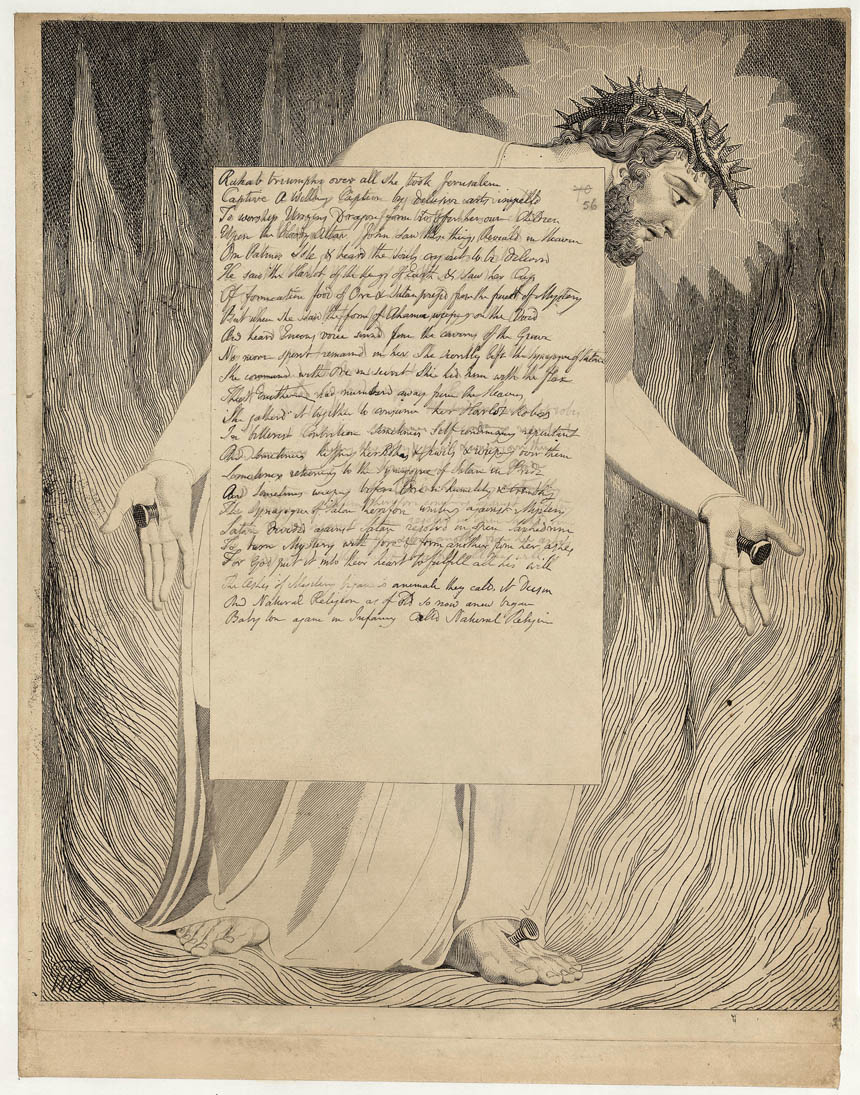 Rahab triumphs over all she took Jerusalem
Captive A Willing Captive by delusive arts impelld
To worship Urizens Dragon form to offer her own Children
Upon the bloody Altar. John Saw these things Reveald in Heaven
On Patmos Isle & heard the Souls cry out to be deliverd
He saw the Harlot of the Kings of Earth & saw her Cup
Of fornication food of Orc & Satan pressd from the fruit of Mystery
But when she saw the form of Ahania weeping on the Void
And heard Enions voice sound from the caverns of the Grave
No more spirit remaind in her She secretly left the Synagogue of Satan
She commund with Orc in secret She hid him with the flax
That Enitharmon had numberd away from the Heavens
She gatherd it together to consume her Harlot Robes
In bitterest Contrition sometimes Self condemning repentant
And Sometimes kissing her Robes & jewels & weeping over them
Sometimes returning to the Synagogue of Satan in Pride
And Sometimes weeping before Orc in humility & trembling
The Synagogue of Satan therefore uniting against Mystery
Satan divided against Satan resolvd in open Sanhedrim
To burn Mystery with fire & form another from her ashes
For God put it into their heart to fulfill all his will
The Ashes of Mystery began to animate they calld it Deism
And Natural Religion as of old so now anew began
Babylon again in Infancy Calld Natural Religion
56